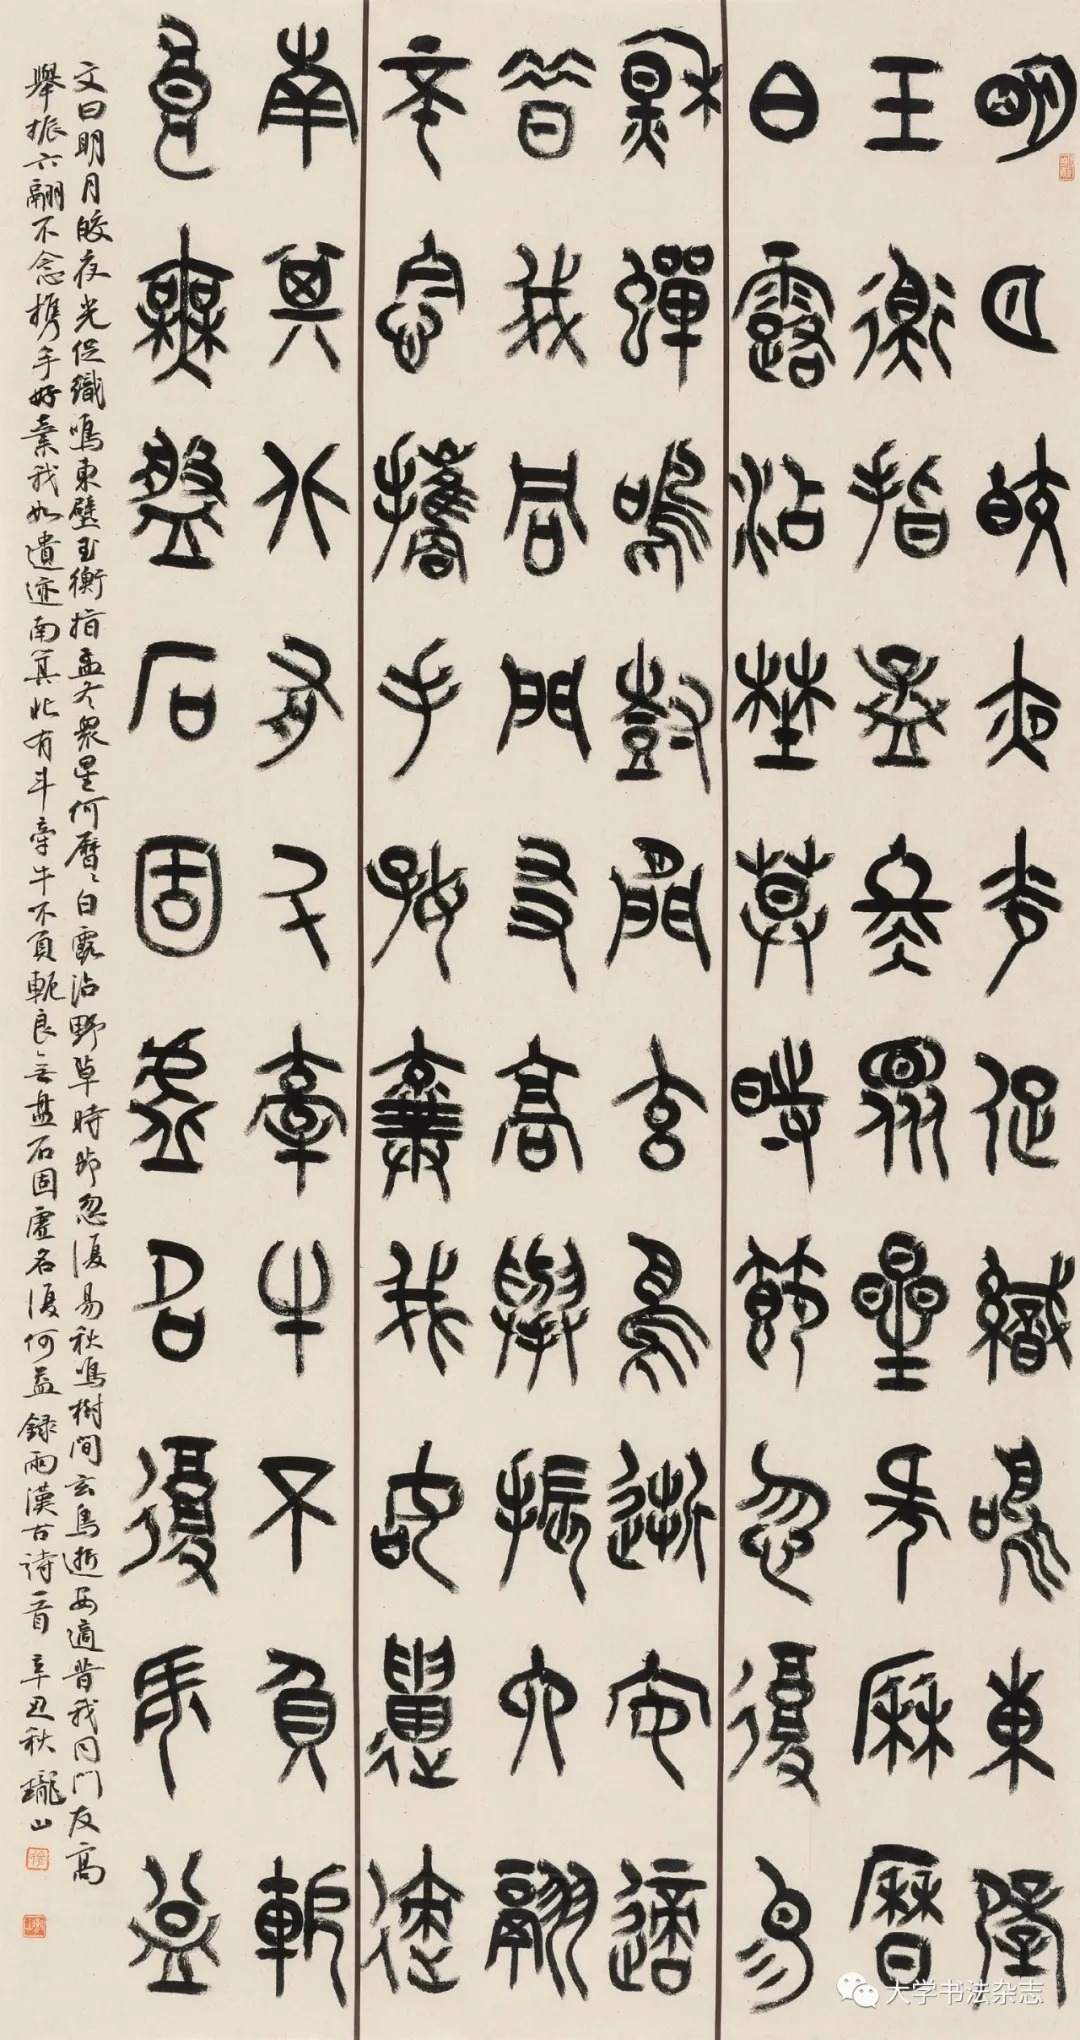 明月皎夜光促織鳴東壁
玉衡指孟冬眾星何厤曆
白露沾野草時節忽復易
秋蟬鳴樹間玄鳥逝安適
昔我同門友高舉振六翮
棄念攜手好棄我如遺迹
南箕北有斗牽牛不負軛
良無盤石固虛名復何益
文曰明月皎夜光促織鳴東壁玉衡指孟冬眾星何曆〻白露沾野草時節忽復易秋鳴樹間玄鳥逝安適昔我同門友高
舉振六翮不念攜手好棄我如遺迹南箕北有斗牽牛不負軛良無盤石固虛名復何益 錄兩漢古詩一首 辛丑秋 瓏山
大学书法杂志